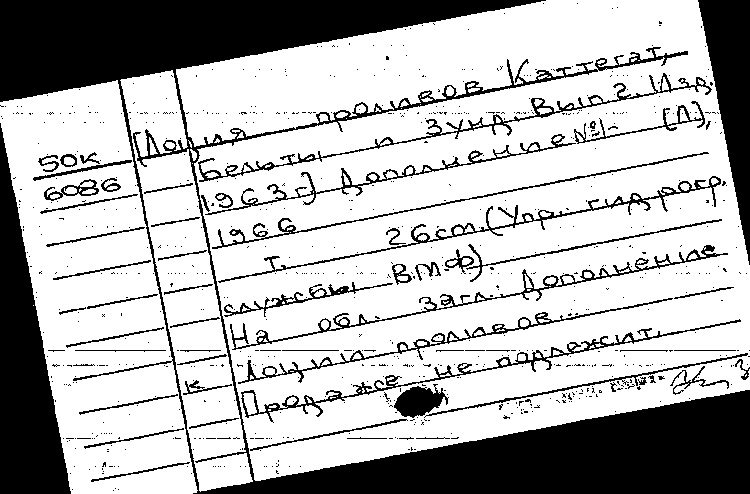 [Лоция проливов Каттегат,
50к Бельты и Зунд. Вып 2. Изд.
6086 1963г] Дополнение №1- [Л],
1966
т. 26см. (Упр. гидрогр.
службы ВМФ).
На обл. загл.: Дополнение
Лоции проливов...
к Продаже не подлежит.